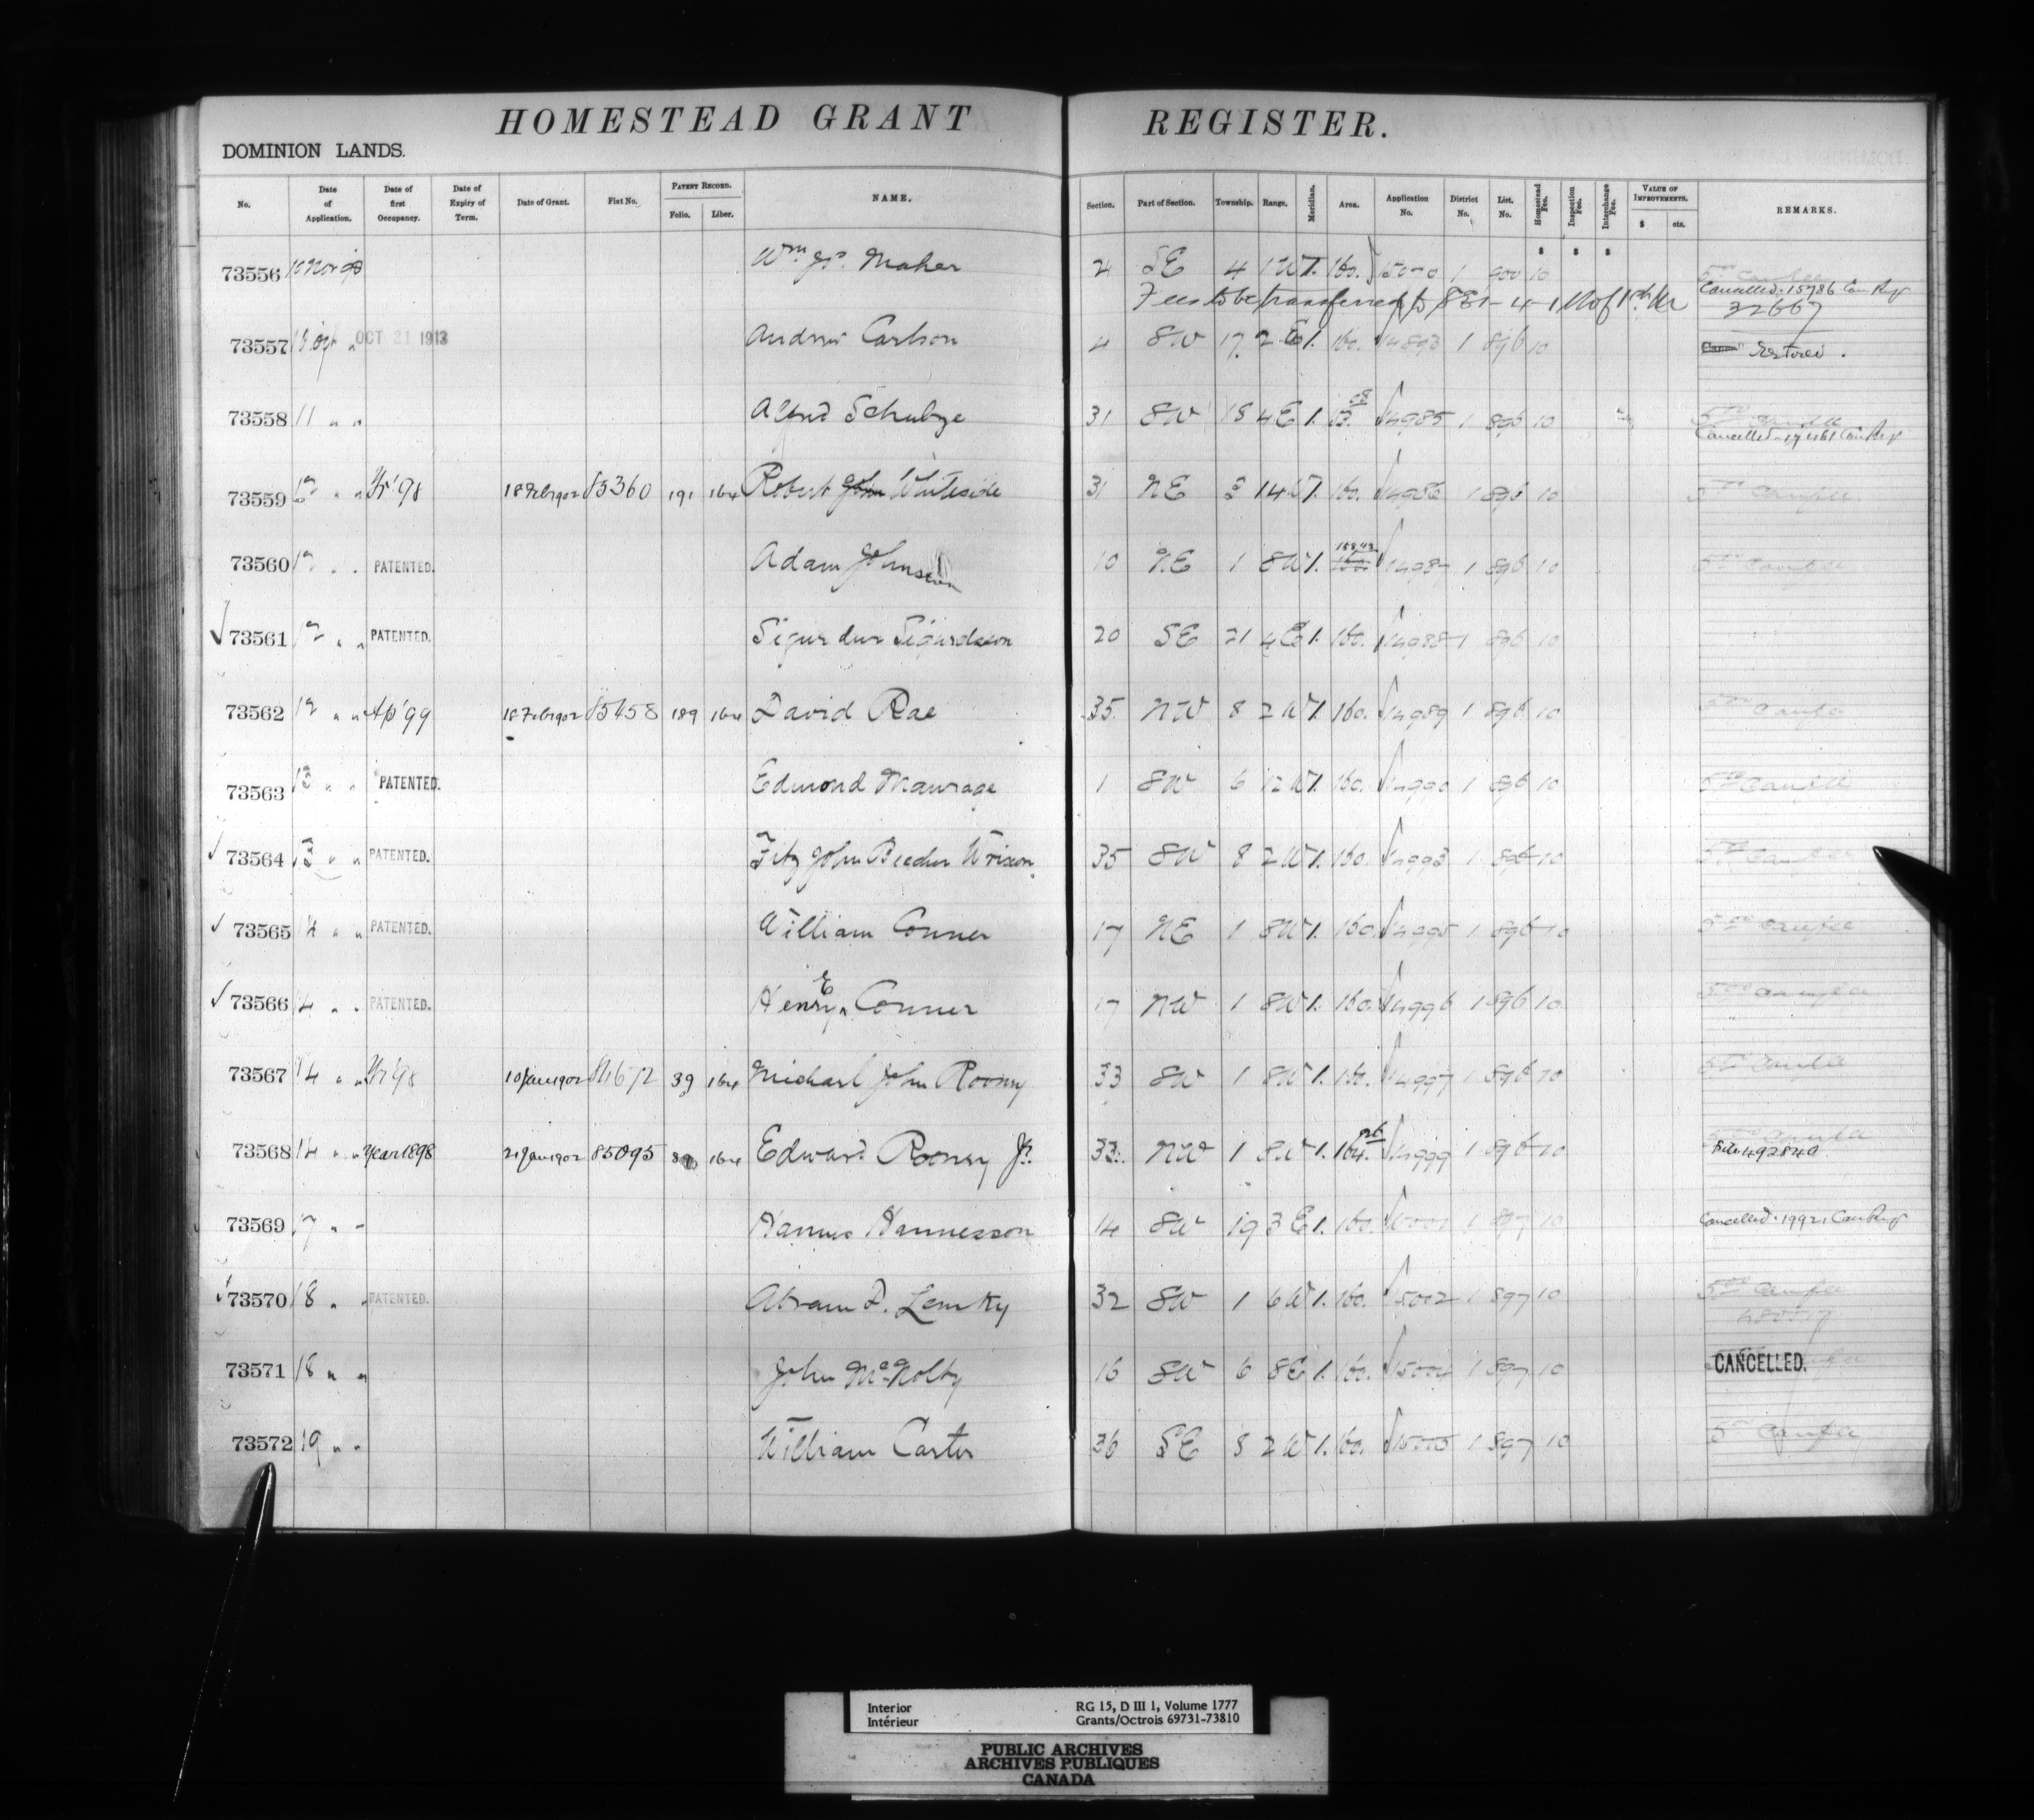 HOMESTEAD GRANT REGISTER.
DOMINION LANDS.
No. Date of Application. Date of first Occupancy. Date of Expiry of Term. Date of Grant. Fiat No. PATENT RECORD. Folio. Liber. NAME. Section. Part of Section. Township. Range. Meridian. Area. Application No. District No. List. No. Homestead Fee. Inspection Fee. Interchange Fee. VALUE OF IMPROVEMENTS. $ cts. REMARKS.
$ $ $
73556 10 Nov 98 Wm. Jr. Maher 24 SE 4 1 W 1. 160. 15070 1 900 10
Cancelled. 15786 Can Reg
Fees to be transferred to SE 1-4-1 W of 1st Mer 32667
73557 OCT 21 1913 Andrew Carlson 4 SW 17 2 E 1. 160. 14893 1 896 10 Restored.
73558 11 " " Alfred Schulze 31 SW 18 4 E 1. 14985 1 896 10
Cancelled. 17461 Can Reg
73559 12 " " Yr '98 18 Feb 1902 85360 191 164 Robert John Whiteside 31 NE 3 14 W 1. 160. 14986 1 896 10
73560 12 " " PATENTED. Adam Johnston 10 NE 1 8 W 1. 160. 14987 1 896 10
73561 12 " " PATENTED. Sigurdur Sigurdsson 20 SE 21 4 E 1. 160. 14988 1 896 10
73562 12 " " Ap '99 18 Feb 1902 85458 189 164 David Rae 35 NW 8 2 W 1. 160. 14989 1 896 10
73563 13 " " PATENTED. Edmond Maurage 1 SW 6 12 W 1. 160. 14990 1 896 10
73564 13 " " PATENTED. Fitz John Beecher Wrixon. 35 SW 8 2 W 1. 160. 14993 1 896 10
73565 14 " " PATENTED. William Conner 17 NE 1 8 W 1. 160. 14995 1 896 10
73566 14 " " PATENTED. Henry E Conner 17 NW 1 8 W 1. 160. 14996 1 896 10
73567 14 " " Yr '98 10 Jan 1902 84672 39 164 Michael John Rooney 33 SW 1 8 W 1. 160. 14997 1 896 10
73568 14 " " Year 1898 21 Jan 1902 85095 164 Edward Rooney Jr. 33. NW 1 8 W 1. 164. 14999 1 896 10
File 492840
73569 17 " " Hannes Hannesson 14 SW 19 3 E 1. 160. 15001 1 897 10 Cancelled. 19921 Can Reg
73570 18 " " PATENTED. Abram D. Lemky 32 SW 1 6 W 1. 160. 15002 1 897 10
73571 18 " " John McNolty 16 SW 6 8 E 1. 160. 15004 1 897 10 CANCELLED.
73572 19 " " William Carter 36 SE 8 2 W 1. 160. 15005 1 897 10
Interior RG 15, D III 1, Volume 1777
Intérieur Grants/Octrois 69731-73810
PUBLIC ARCHIVES
ARCHIVES PUBLIQUES
CANADA